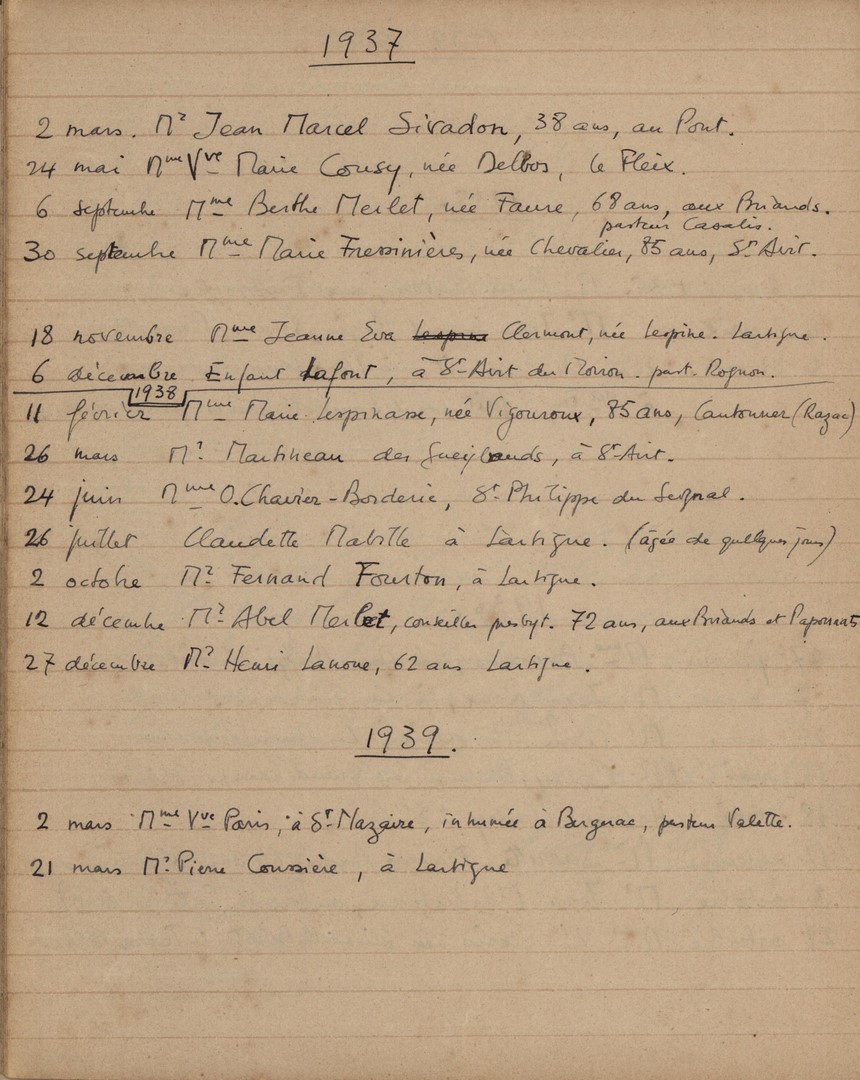 1937
2 mars. Mr Jean Marcel Sivadon, 38 ans, au Pont.
24 mai Mme Vve Marie Cousy, née Delbos, le Fleix.
6 septembre Mme Berthe Merlet, née Faure, 68 ans, aux Briands.
pasteur Casalis.
30 septembre Mme Marie Fressinières, née Chevalier, 85 ans, St Avit.
18 novembre Mme Jeanne Eva Lespine Clermont, née Lespine. Lartigue.
6 décembre Enfant Lafont, à St-Avit du Moiron. past. Rognon.
1938
11 février Mme Marie Lespinasse, née Vigouroux, 85 ans, Cantonner (Razac)
26 mars Mr Martineau des Gueylauds, à St-Avit.
24 juin Mme O. Chavier-Borderie, St Philippe du Seignal.
26 juillet Claudette Mabille à Lartigue. (âgée de quelques jours)
2 octobre Mr Fernand Fourton, à Lartigue.
12 décembre Mr Abel Merlet, conseiller presbyt. 72 ans, aux Briands et
27 décembre Mr Henri Lanoue, 62 ans Lartigue.
1939.
2 mars Mme Vve Paris, à St-Nazaire, inhumée à Bergerac, pasteur Valette.
21 mars Mr Pierre Coussière, à Lartigue